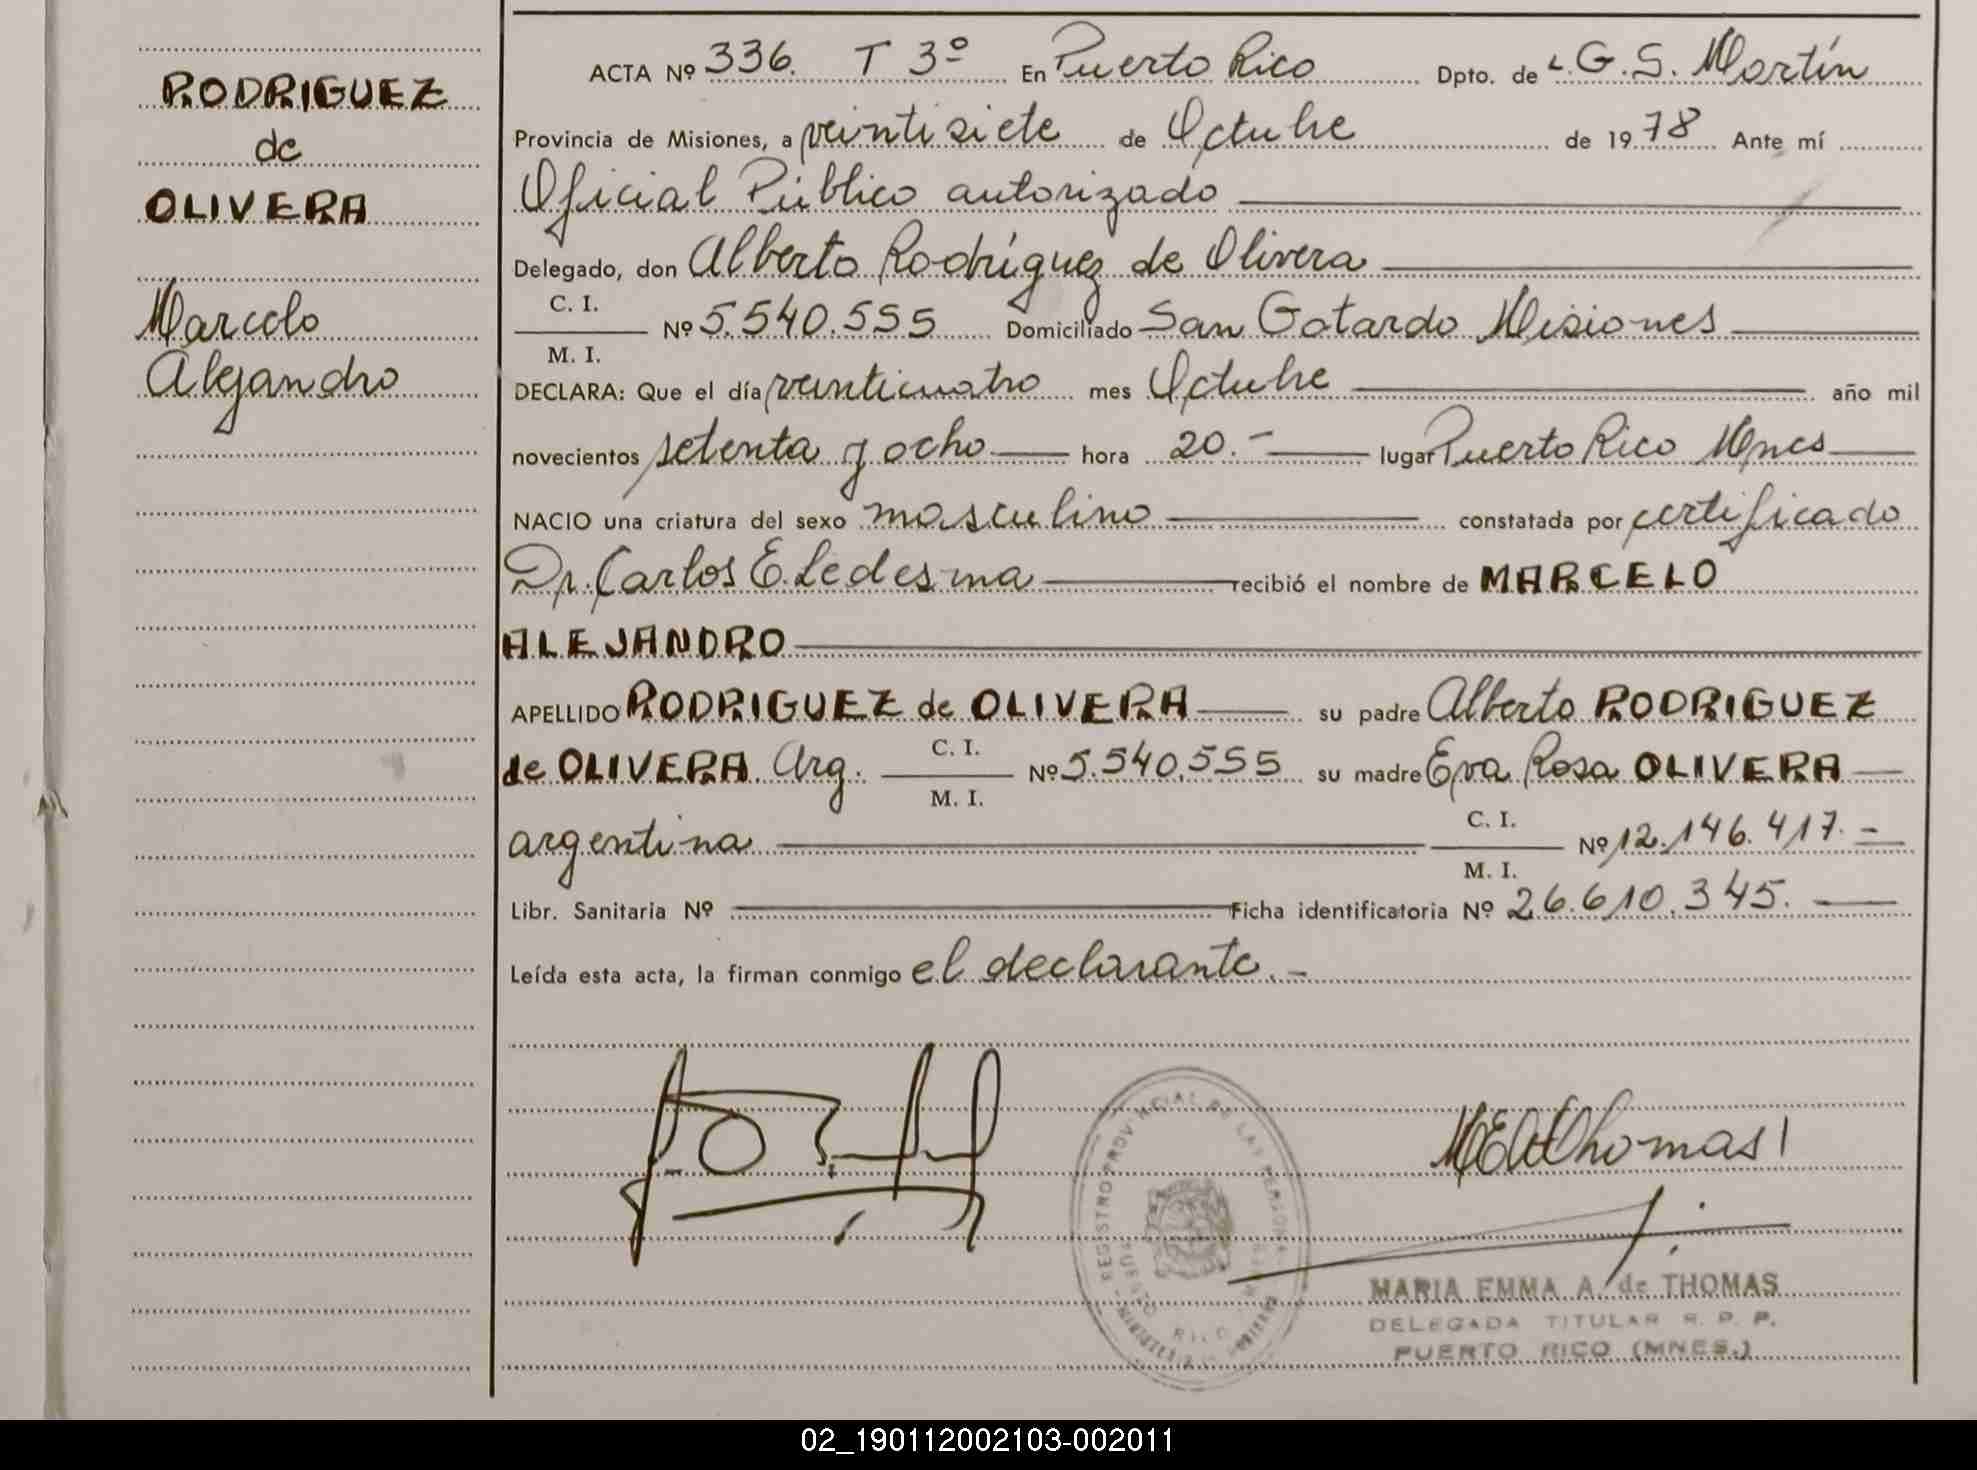 RODRIGUEZ
de
OLIVERA
Marcelo
Alejandro
ACTA Nº 336. T 3º En Puerto Rico Dpto. de L.G.S. Martín
Provincia de Misiones, a veintisiete de Octubre de 1978 Ante mí
Oficial Público autorizado
Delegado, don Alberto Rodríguez de Olivera
C. I.
M. I.
Nº 5.540.555 Domiciliado San Gotardo Misiones
DECLARA: Que el día veinticuatro mes Octubre año mil
novecientos setenta y ocho hora 20.- lugar Puerto Rico Mnes
NACIO una criatura del sexo masculino constatada por certificado
Dr. Carlos E. Ledesma recibió el nombre de MARCELO
ALEJANDRO
APELLIDO RODRIGUEZ de OLIVERA su padre Alberto RODRIGUEZ
de OLIVERA Arg. C. I. M. I. Nº 5.540.555 su madre Eva Rosa OLIVERA
argentina C. I. M. I. Nº 12.146.417.-
Libr. Sanitaria Nº Ficha identificatoria Nº 26.610.345.
Leída esta acta, la firman conmigo el declarante.-
REGISTRO PROVINCIAL DE LAS PERSONAS
PUERTO RICO
MEAdeThomas
MARIA EMMA A. de THOMAS
DELEGADA TITULAR R. P. P.
PUERTO RICO (MNES.)
02_190112002103-002011